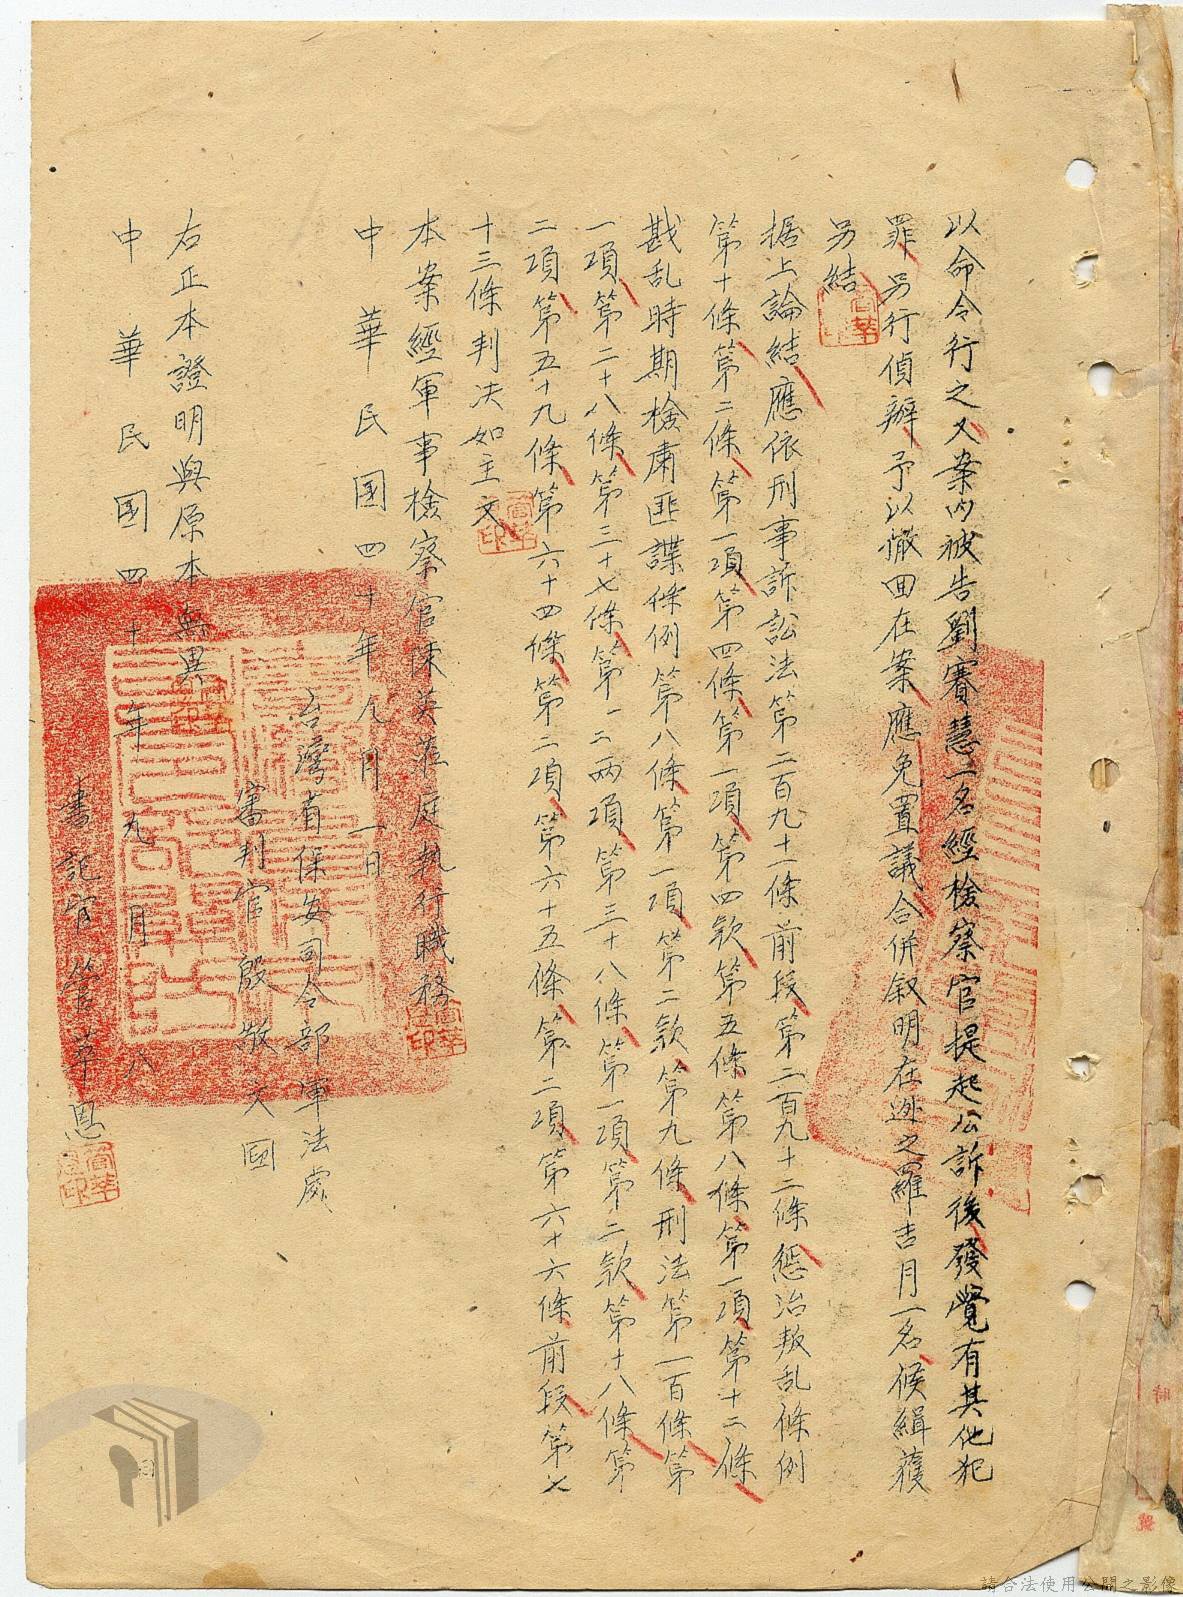 以命令行之又案內被告劉賽慧一名經檢察官提起公訴後發覺有其他犯
罪另行偵辦予以撤回在案應免置議合併敘明在逃之羅吉月一名候緝獲
另結
据上論結應依刑事訴訟法第二百九十一條前段第二百九十二條懲治叛乱條例
第十條第二條第一項第四條第一項第四款第五條第八條第一項第十二條
戡乱時期檢肅匪諜條例第八條第一項第二款第九條刑法第一百條第
一項第二十八條第三十七條第一二兩項第三十八條第一項第二款第十八條第
二項第五十九條第六十四條第二項第六十五條第二項第六十六條前段第七
十三條判决如主文
本案經軍事檢察官陳英蒞庭執行職務
中華民國四十年九月一日
台灣省保安司令部軍法處
審判官殷敬文
右正本證明與原本無異
中華民國四十年九月八日
書記官管華恩
請合法使用公開之影像